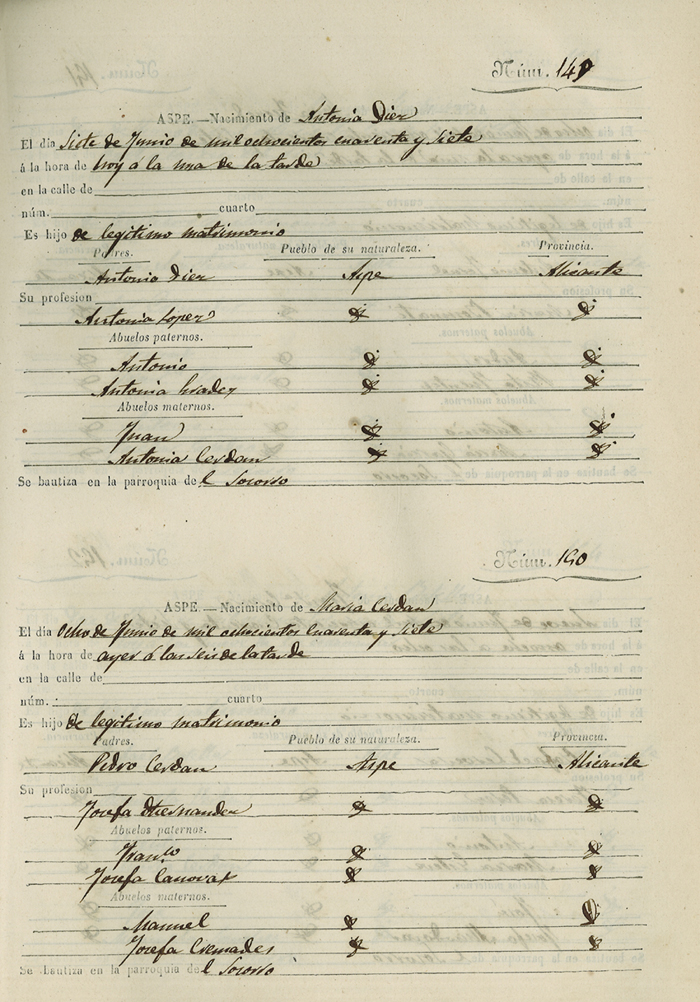 Núm. 149
ASPE.—Nacimiento de Antonia Dier
El dia Siete de Junio de mil ochocientos cuarenta y siete
á la hora de hoy a la una de la tarde
en la calle de
núm. cuarto
Es hijo de legitimo matrimonio
Padres. Pueblo de su naturaleza. Provincia.
Antonio Dier Aspe Alicante
Su profesion
Antonia Lopez
Abuelos paternos.
Antonio
Antonia
Abuelos maternos.
Juan
Antonia Cerdan
Se bautiza en la parroquia del Socorro
Núm. 150
ASPE.—Nacimiento de Maria Cerdan
El dia Ocho de Junio de mil ochocientos cuarenta y siete
á la hora de ayer á las seis de la tarde
en la calle de
núm. cuarto
Es hijo de legitimo matrimonio
Padres. Pueblo de su naturaleza. Provincia.
Pedro Cerdan Aspe Alicante
Su profesion
Josefa Hernandez
Abuelos paternos.
Franco
Josefa Canovas
Abuelos maternos.
Manuel
Josefa Cremades
Se bautiza en la parroquia del Socorro